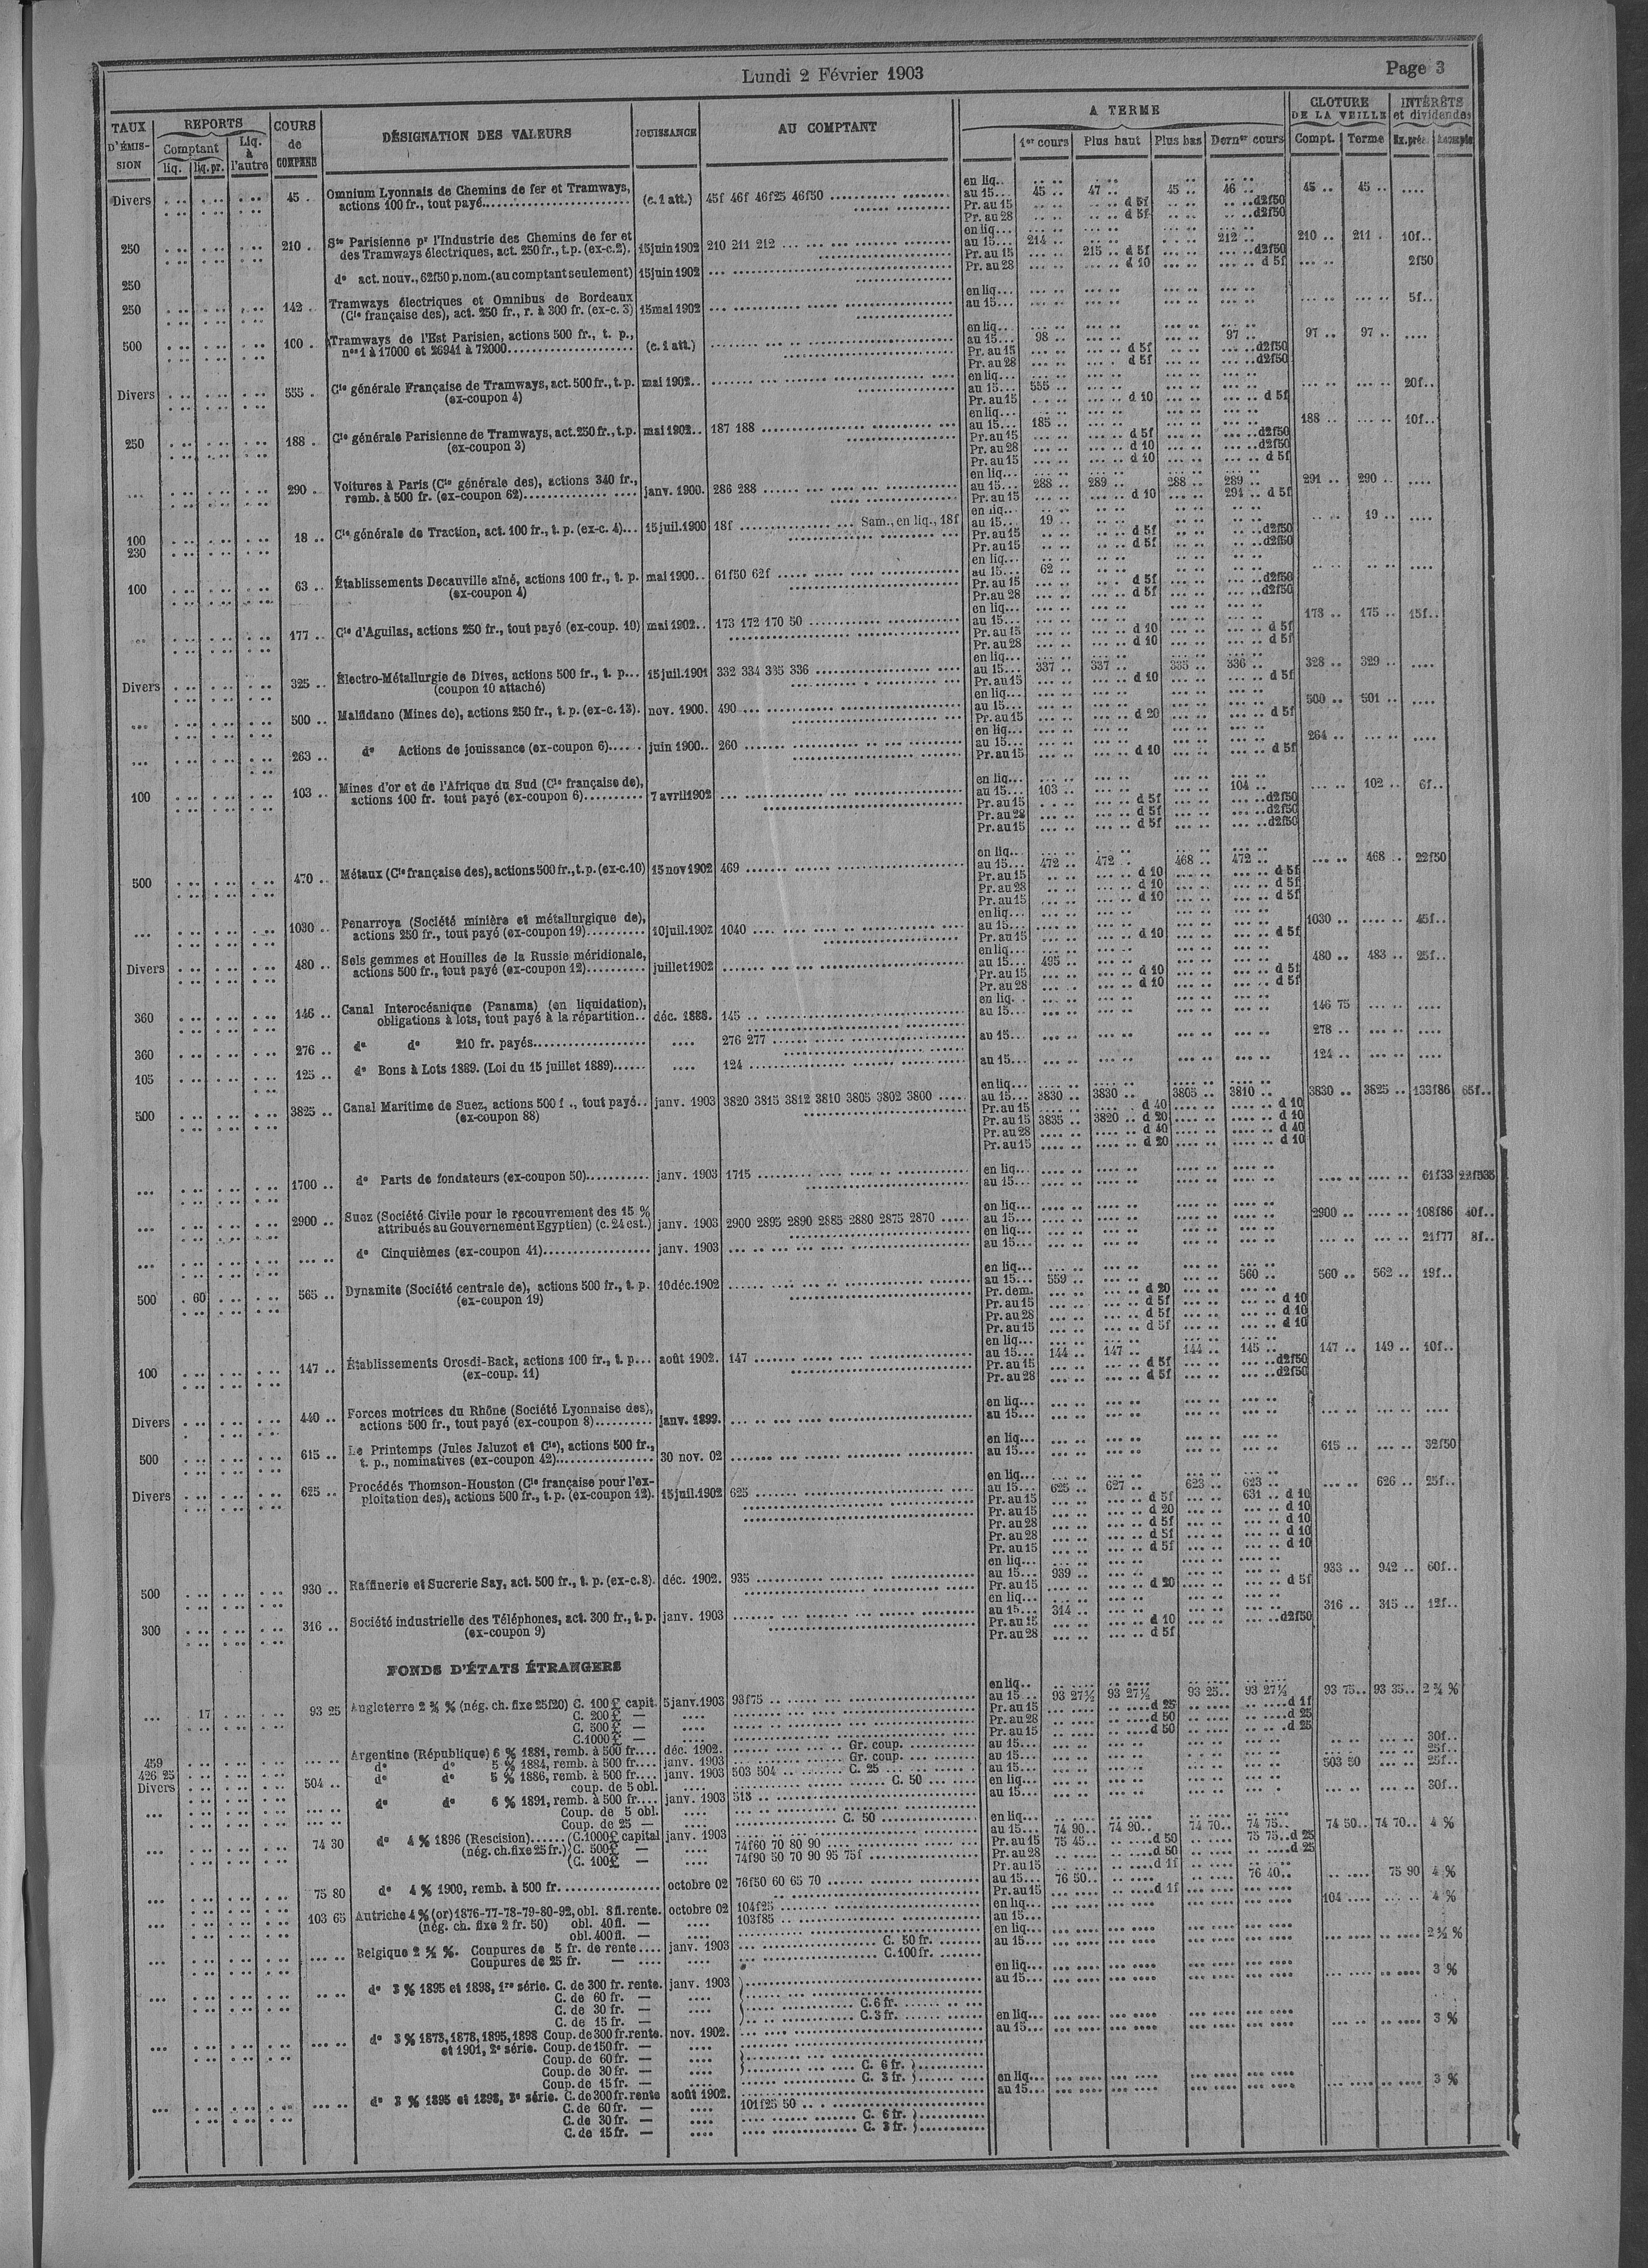 Lundi 2 Février 1903
Page 3
TAUX D'ÉMISSION
REPORTS
Comptant
liq.
liq. pr.
Liq. à l'autre
COURS de COMPENS
DÉSIGNATION DES VALEURS
JOUISSANCE
AU COMPTANT
A TERME
1er cours
Plus haut
Plus bas
Derner cours
CLOTURE DE LA VEILLE
Compt.
Terme
INTÉRÊTS et dividendes
Ex. préc.
Acompte
Divers 45 Omnium Lyonnais de Chemins de fer et Tramways, en liq.
actions 100 fr., tout payé (c. 1 att.) 45f 46f 46f25 46f50 au 15 45 47 45 46 45 45
Pr. au 15 d 5f d2f50
Pr. au 28 d 5f d2f50
250 210 Sté Parisienne pr l'Industrie des Chemins de fer et en liq.
des Tramways électriques, act. 250 fr., t.p. (ex-c.2). 15 juin 1902 210 211 212 au 15 214 212 210 211 10f
Pr. au 15 215 d 5f d2f50
Pr. au 28 d 10 d 5f
250 do act. nouv., 62f50 p. nom. (au comptant seulement) 15 juin 1902 2f50
250 142 Tramways électriques et Omnibus de Bordeaux en liq.
(Cie française des), act. 250 fr., r. à 300 fr. (ex-c. 3) 15 mai 1902 au 15 5f
500 100 Tramways de l'Est Parisien, actions 500 fr., t. p., en liq.
nos 1 à 17000 et 26941 à 72000 (c. 1 att.) au 15 98 97 97 97
Pr. au 15 d 5f d2f50
Pr. au 28 d 5f d2f50
Divers 555 Cie générale Française de Tramways, act. 500 fr., t. p. mai 1902 en liq.
(ex-coupon 4) au 15 555 20f
Pr. au 15 d 10 d 5f
250 188 Cie générale Parisienne de Tramways, act. 250 fr., t. p. mai 1902 187 188 en liq.
(ex-coupon 3) au 15 185 188 10f
Pr. au 15 d 5f d2f50
Pr. au 28 d 10 d2f50
Pr. au 15 d 10 d 5f
290 Voitures à Paris (Cie générale des), actions 340 fr., en liq.
remb. à 500 fr. (ex-coupon 62) janv. 1900. 286 288 au 15 288 289 288 289 291 290
Pr. au 15 d 10 291 d 5f
100 230 18 Cie générale de Traction, act. 100 fr., t. p. (ex-c. 4) 15 juil. 1900 18f Sam., en liq., 18f en liq.
au 15 19 19
Pr. au 15 d 5f d2f50
Pr. au 15 d 5f d2f50
100 63 Établissements Decauville aîné, actions 100 fr., t. p. mai 1900 61f50 62f en liq.
(ex-coupon 4) au 15 62
Pr. au 15 d 5f d2f50
Pr. au 28 d 5f d2f50
177 Cie d'Aguilas, actions 250 fr., tout payé (ex-coup. 10) mai 1902 173 172 170 50 en liq.
au 15 173 175 15f
Pr. au 15 d 10 d 5f
Pr. au 28 d 10 d 5f
Divers 325 Électro-Métallurgie de Dives, actions 500 fr., t. p. 15 juil. 1901 332 334 335 336 en liq.
(coupon 10 attaché) au 15 337 337 335 336 328 329
Pr. au 15 d 10 d 5f
500 Malfidano (Mines de), actions 250 fr., t. p. (ex-c. 13). nov. 1900. 490 en liq.
au 15 500 501
Pr. au 15 d 20 d 5f
263 do Actions de jouissance (ex-coupon 6) juin 1900 260 en liq.
au 15 264
Pr. au 15 d 10 d 5f
100 103 Mines d'or et de l'Afrique du Sud (Cie française de), en liq.
actions 100 fr. tout payé (ex-coupon 6) 7 avril 1902 au 15 103 104 102 6f
Pr. au 15 d 5f d2f50
Pr. au 28 d 5f d2f50
Pr. au 15 d 5f d2f50
500 470 Métaux (Cie française des), actions 500 fr., t. p. (ex-c. 10) 15 nov 1902 469 en liq.
au 15 472 472 468 472 468 22f50
Pr. au 15 d 10 d 5f
Pr. au 28 d 10 d 5f
Pr. au 15 d 10 d 5f
1030 Penarroya (Société minière et métallurgique de), en liq.
actions 250 fr., tout payé (ex-coupon 19) 10 juil. 1902 1040 au 15 1030 45f
Pr. au 15 d 10 d 5f
Divers 480 Sels gemmes et Houilles de la Russie méridionale, en liq.
actions 500 fr., tout payé (ex-coupon 12) juillet 1902 au 15 495 480 483 25f
Pr. au 15 d 10 d 5f
Pr. au 28 d 10 d 5f
360 146 Canal Interocéanique (Panama) (en liquidation), en liq.
obligations à lots, tout payé à la répartition déc. 1888. 145 au 15 146 75
360 276 do do 210 fr. payés 276 277 au 15 278
105 125 do Bons à Lots 1889. (Loi du 15 juillet 1889) 124 au 15 124
500 3825 Canal Maritime de Suez, actions 500 f., tout payé janv. 1903 3820 3815 3812 3810 3805 3802 3800 en liq.
(ex-coupon 88) au 15 3830 3830 3805 3810 3830 3825 133f86 65f
Pr. au 15 d 40 d 10
Pr. au 15 3835 3820 d 20 d 10
Pr. au 28 d 40 d 40
Pr. au 15 d 20 d 10
1700 do Parts de fondateurs (ex-coupon 50) janv. 1903 1715 en liq.
au 15 61f33 22f335
2900 Suez (Société Civile pour le recouvrement des 15 % en liq.
attribués au Gouvernement Egyptien) (c. 24 est.) janv. 1903 2900 2895 2890 2885 2880 2875 2870 au 15 2900 108f86 40f
do Cinquièmes (ex-coupon 41) janv. 1903 en liq.
au 15 21f77 8f
500 60 565 Dynamite (Société centrale de), actions 500 fr., t. p. 10 déc. 1902 en liq.
(ex-coupon 19) au 15 559 560 560 562 19f
Pr. dem. d 20
Pr. au 15 d 5f d 10
Pr. au 28 d 5f d 10
Pr. au 15 d 5f d 10
100 147 Établissements Orosdi-Back, actions 100 fr., t. p. août 1902. 147 en liq.
(ex-coup. 11) au 15 144 147 144 145 147 149 10f
Pr. au 15 d 5f d2f50
Pr. au 28 d 5f d2f50
Divers 440 Forces motrices du Rhône (Société Lyonnaise des), en liq.
actions 500 fr., tout payé (ex-coupon 8) janv. 1899. au 15
500 615 Le Printemps (Jules Jaluzot et Cie), actions 500 fr., en liq.
t. p., nominatives (ex-coupon 42) 30 nov. 02 au 15 615 32f50
Divers 625 Procédés Thomson-Houston (Cie française pour l'ex- en liq.
ploitation des), actions 500 fr., t. p. (ex-coupon 12). 15 juil. 1902 625 au 15 625 627 623 623 626 25f
Pr. au 15 d 5f 631 d 10
Pr. au 15 d 20 d 10
Pr. au 28 d 5f d 10
Pr. au 28 d 5f d 10
Pr. au 15 d 5f d 10
500 930 Raffinerie et Sucrerie Say, act. 500 fr., t. p. (ex-c. 8). déc. 1902. 935 en liq.
au 15 939 933 942 60f
Pr. au 15 d 20 d 5f
300 316 Société industrielle des Téléphones, act. 300 fr., t. p. janv. 1903 en liq.
(ex-coupon 9) au 15 314 316 315 12f
Pr. au 15 d 10 d2f50
Pr. au 28 d 5f
FONDS D'ÉTATS ÉTRANGERS
17 93 25 Angleterre 2 ¾ % (nég. ch. fixe 25f20) C. 100 £ capit. 5 janv. 1903 93f75 en liq.
C. 200 £ — au 15 93 27½ 93 27½ 93 25 93 27½ 93 75 93 35 2 ¾ %
C. 500 £ — Pr. au 15 d 25 d 1f
C. 1000 £ — Pr. au 28 d 50 d 25
Pr. au 15 d 50 d 25
459 Argentine (République) 6 % 1881, remb. à 500 fr. déc. 1902. Gr. coup. au 15 30f
426 25 do do 5 % 1884, remb. à 500 fr. janv. 1903 Gr. coup. au 15 25f
Divers 504 do do 5 % 1886, remb. à 500 fr. janv. 1903 503 504 C. 25 au 15 503 50 25f
coup. de 5 obl. C. 50 en liq.
do do 6 % 1891, remb. à 500 fr. janv. 1903 518 au 15 30f
Coup. de 5 obl.
Coup. de 25 — C. 50 en liq.
74 30 do 4 % 1896 (Rescision) (C. 1000 £ capital janv. 1903 au 15 74 90 74 90 74 70 74 75 74 50 74 70 4 %
(nég. ch. fixe 25 fr.) C. 500 £ — 74f60 70 80 90 Pr. au 15 75 45 d 50 75 75 d 25
(C. 100 £ — 74f90 50 70 90 95 75f Pr. au 28 d 50 d 25
Pr. au 15 d 1f
75 80 do 4 % 1900, remb. à 500 fr. octobre 02 76f50 60 65 70 au 15 76 50 76 40 75 90 4 %
Pr. au 15 d 1f
103 65 Autriche 4 % (or) 1876-77-78-79-80-92, obl. 8 fl. rente. octobre 02 104f25 en liq. 104 4 %
(nég. ch. fixe 2 fr. 50) obl. 40 fl. — 103f85 au 15
obl. 400 fl. —
Belgique 2 ½ %. Coupures de 5 fr. de rente janv. 1903 C. 50 fr. en liq. 2 ½ %
Coupures de 25 fr. — C. 100 fr. au 15
do 3 % 1895 et 1898, 1re série. C. de 300 fr. rente. janv. 1903 en liq. 3 %
C. de 60 fr. — au 15
C. de 30 fr. — C. 6 fr.
C. de 15 fr. — C. 3 fr.
do 3 % 1873, 1878, 1895, 1898 Coup. de 300 fr. rente. nov. 1902. en liq. 3 %
et 1901, 2e série. Coup. de 150 fr. — au 15
Coup. de 60 fr. —
Coup. de 30 fr. — C. 6 fr.
Coup. de 15 fr. — C. 3 fr.
do 3 % 1895 et 1898, 3e série. C. de 300 fr. rente août 1902. en liq. 3 %
C. de 60 fr. — 101f25 50 au 15
C. de 30 fr. — C. 6 fr.
C. de 15 fr. — C. 3 fr.